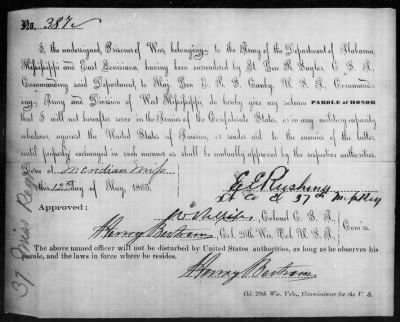 No. 387
I, the undersigned, Prisoner of War, belonging to the Army of the Department of Alabama,
Mississippi and East Louisiana, having been surrendered by Lt. Gen R. Taylor, C. S. A.,
Commanding said Department, to Maj. Gen E. R. S. Canby, U. S. A., Command-
ing Army and Division of West Mississippi, do hereby give my solemn PAROLE of HONOR
that I will not hereafter serve in the Armies of the Confederate States, or in any military capacity
whatever, against the United States of America, or render aid to the enemies of the latter, until
properly exchanged in such manner as shall be mutually approved by the respective authorities.
Done at Meridian Miss
this 12th day of May, 1865.
G E Rushing
Lt Co 37th Miss Regt
Approved:
Colonel C. S. A.
Henry Bertram Col. 20th Wis. Vol. U. S. A.
Com'rs.
The above named officer will not be disturbed by United States authorities, as long as he observes his
parole, and the laws in force where he resides.
Henry Bertram
Col. 20th Wis. Vols., Commissioner for the U. S.
37 Miss Regt